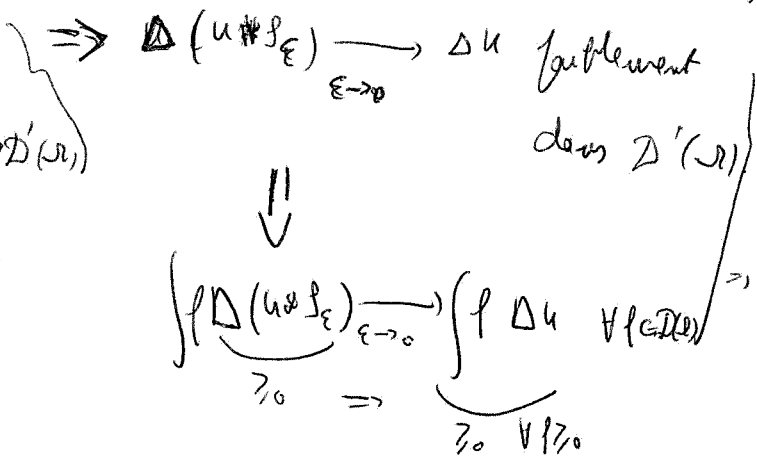 ⇒ Δ(u * ρ_ε) ⟶_{ε→0} Δu faiblement
D'(Ω) dans D'(Ω)
⇓
∫ f Δ(u * ρ_ε) ⟶_{ε→0} ∫ f Δu ∀ f ∈ D(Ω) ⇒
≥0 ⇒ ≥0 ∀ f ≥0